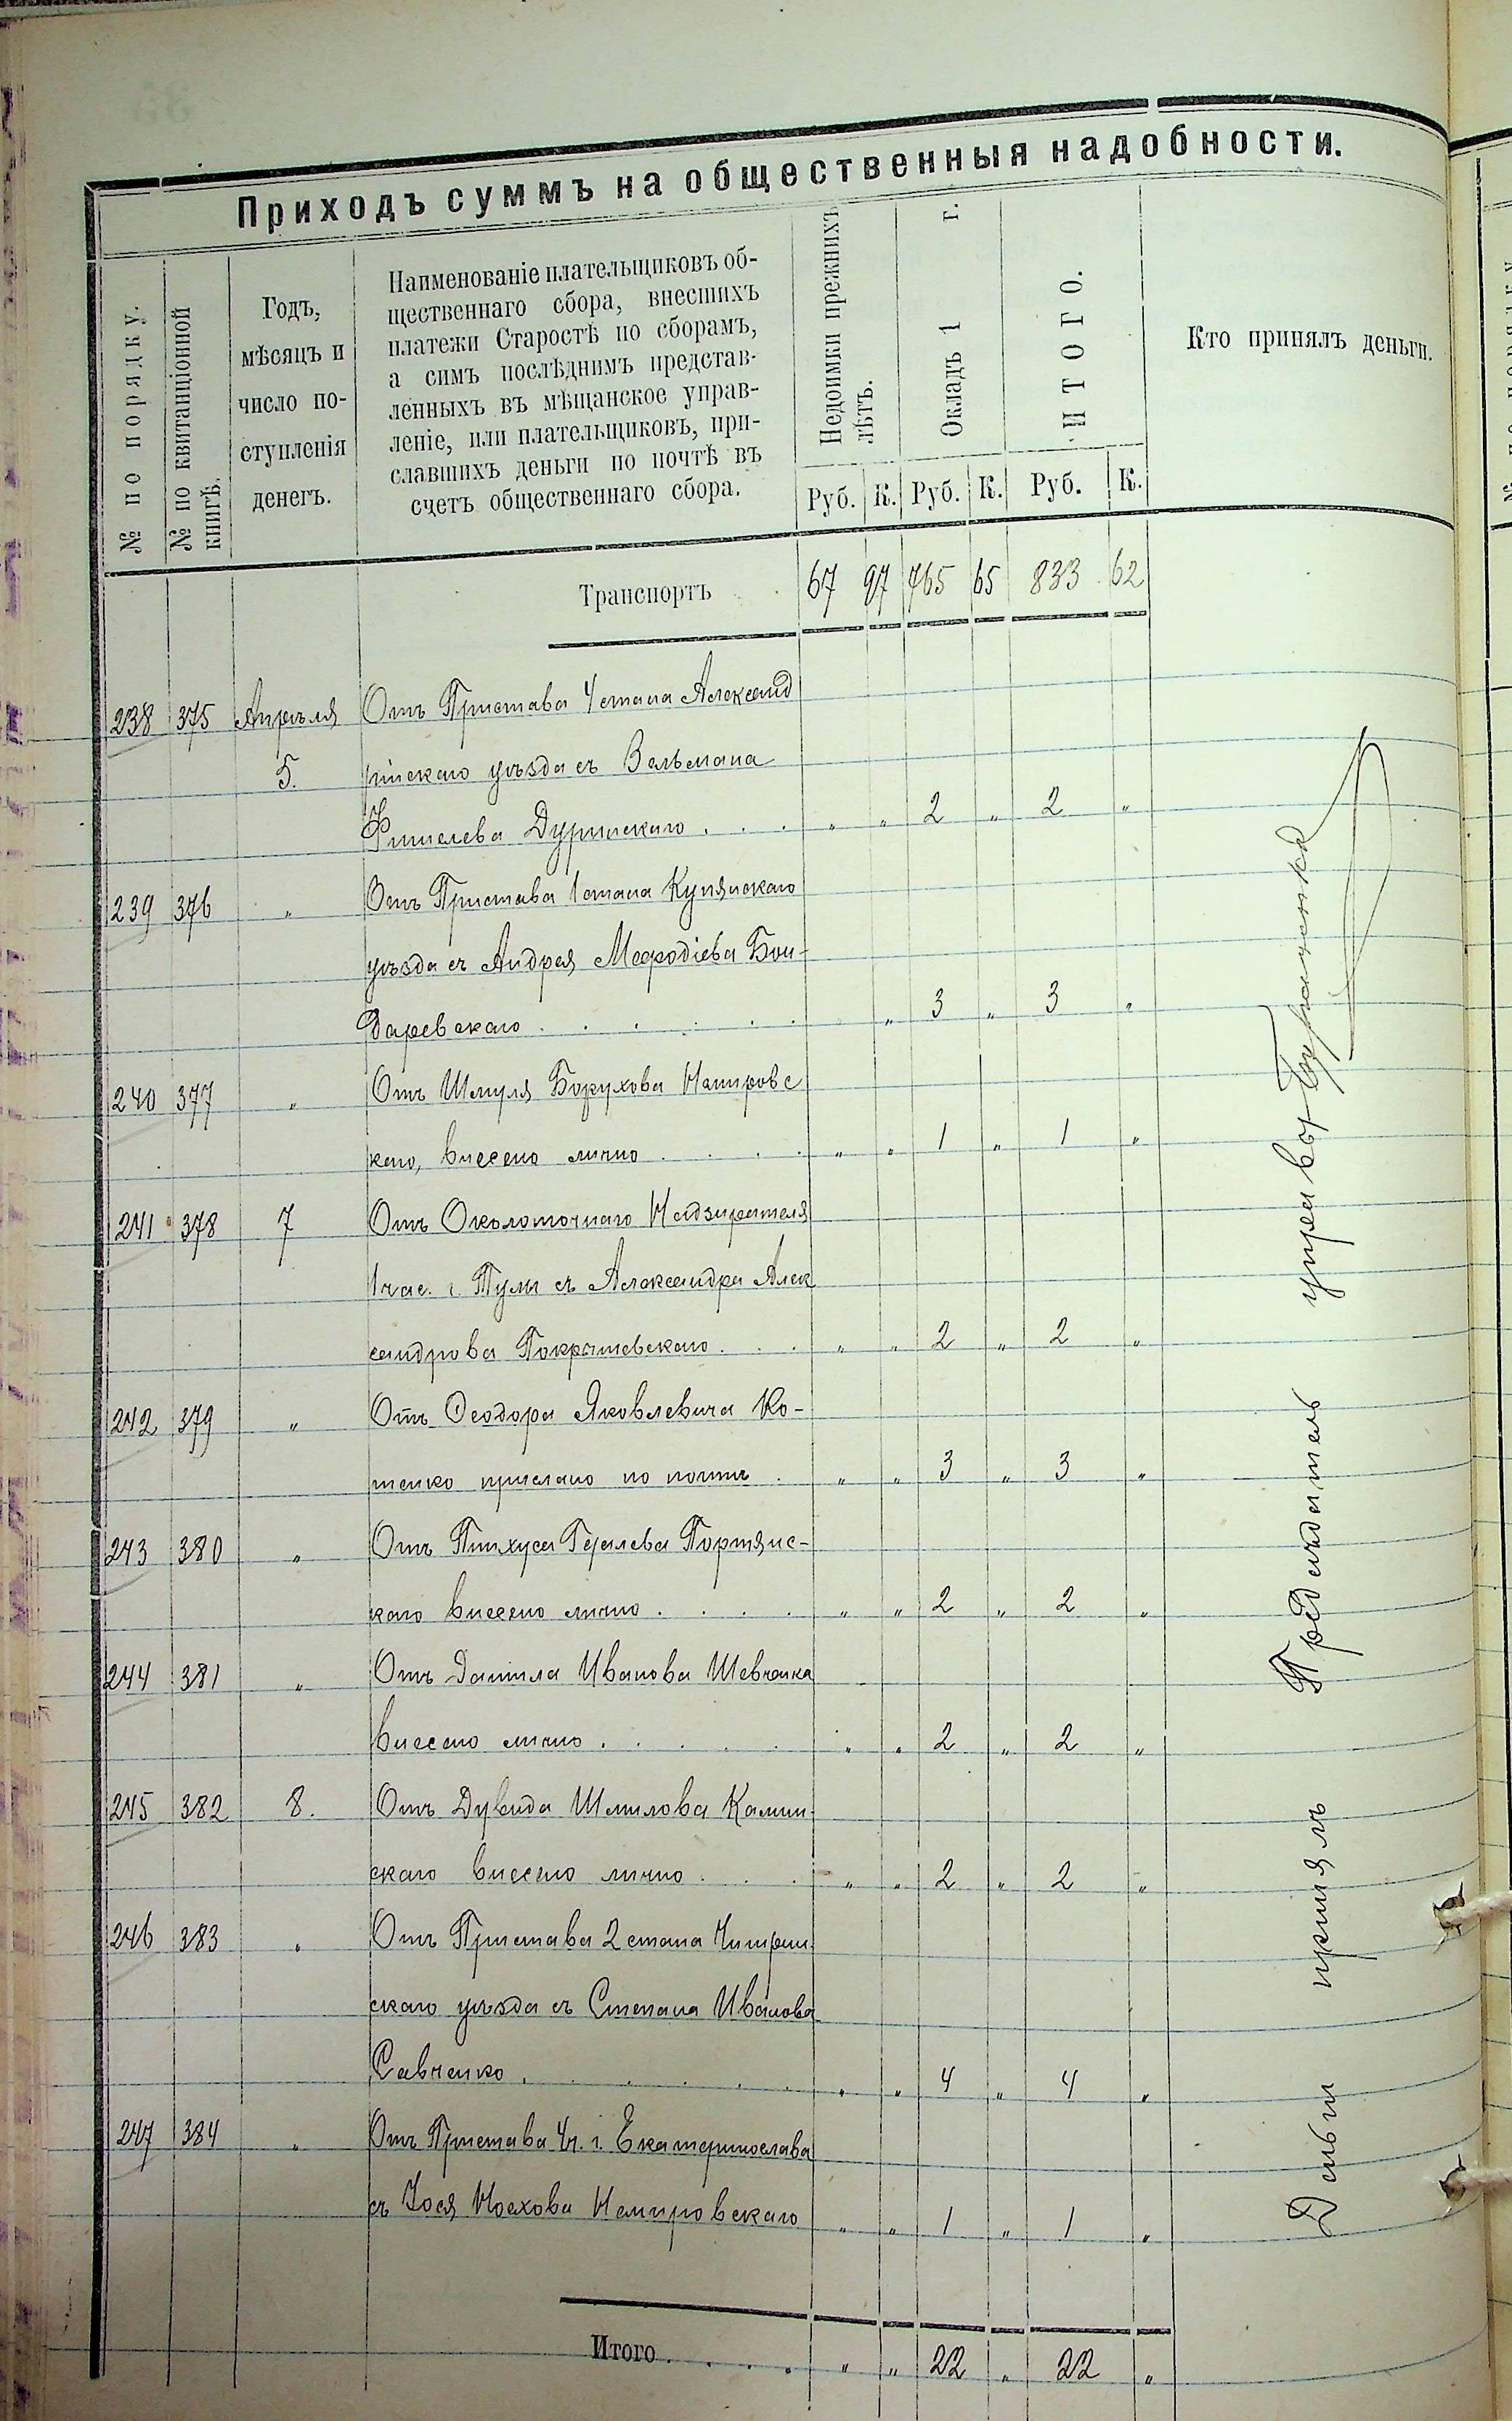 Приходъ суммъ на общественныя надобности.
№ по порядку.
№ по квитанціонной книгѣ.
Годъ, мѣсяцъ и число поступленія денегъ.
Наименованіе плательщиковъ об-
щественнаго сбора, внесшихъ
платежи Старостѣ по сборамъ,
а симъ послѣднимъ представ-
ленныхъ въ мѣщанское управ-
леніе, или плательщиковъ, при-
славшихъ деньги по почтѣ въ
счетъ общественнаго сбора.
Недоимки прежнихъ лѣтъ.
Окладъ 1 г.
ИТОГО.
Кто принялъ деньги.
Руб. К. Руб. К. Руб. К.
Транспортъ 67 97 765 65 833 62
238 375 Апрѣля Отъ Пристава 4 стана Александ
5. рійскаго уѣзда съ Вельмана
Фишелева Дуринскаго . . . " " 2 " 2 "
239 376 " Отъ Пристава 1 стана Купянскаго
уѣзда съ Андрея Меѳодіева Бон-
даревскаго . . . . . . " 3 " 3 "
240 377 " Отъ Шмуля Борухова
каго, внесено лично . . . . " " 1 " 1 "
241 378 7 Отъ Околоточнаго Надзирателя
1 час. г. Тулы съ Александра Алек
сандрова . . . " " 2 " 2 "
242 379 " Отъ Ѳеодора Яковлевича Ко-
тенко прислано по почтѣ . " " 3 " 3 "
243 380 " Отъ Пинхуса Портянс-
каго внесено лично . . . . " " 2 " 2 "
244 381 " Отъ Данила Иванова Шевченка
внесено лично . . . . . " " 2 " 2 "
245 382 8. Отъ Дувида Шмилова Камин-
скаго внесено лично . . . " " 2 " 2 "
246 383 " Отъ Пристава 2 стана Чигрин
скаго уѣзда съ Степана Иванова
Савченко . . . . . . " " 4 " 4 "
247 384 " Отъ Пристава 4 ч. г. Екатеринослава
съ Іося Немировскаго " " 1 " 1 "
Итого . . . . " " 22 " 22 "
Деньги принялъ Предсѣдатель управы